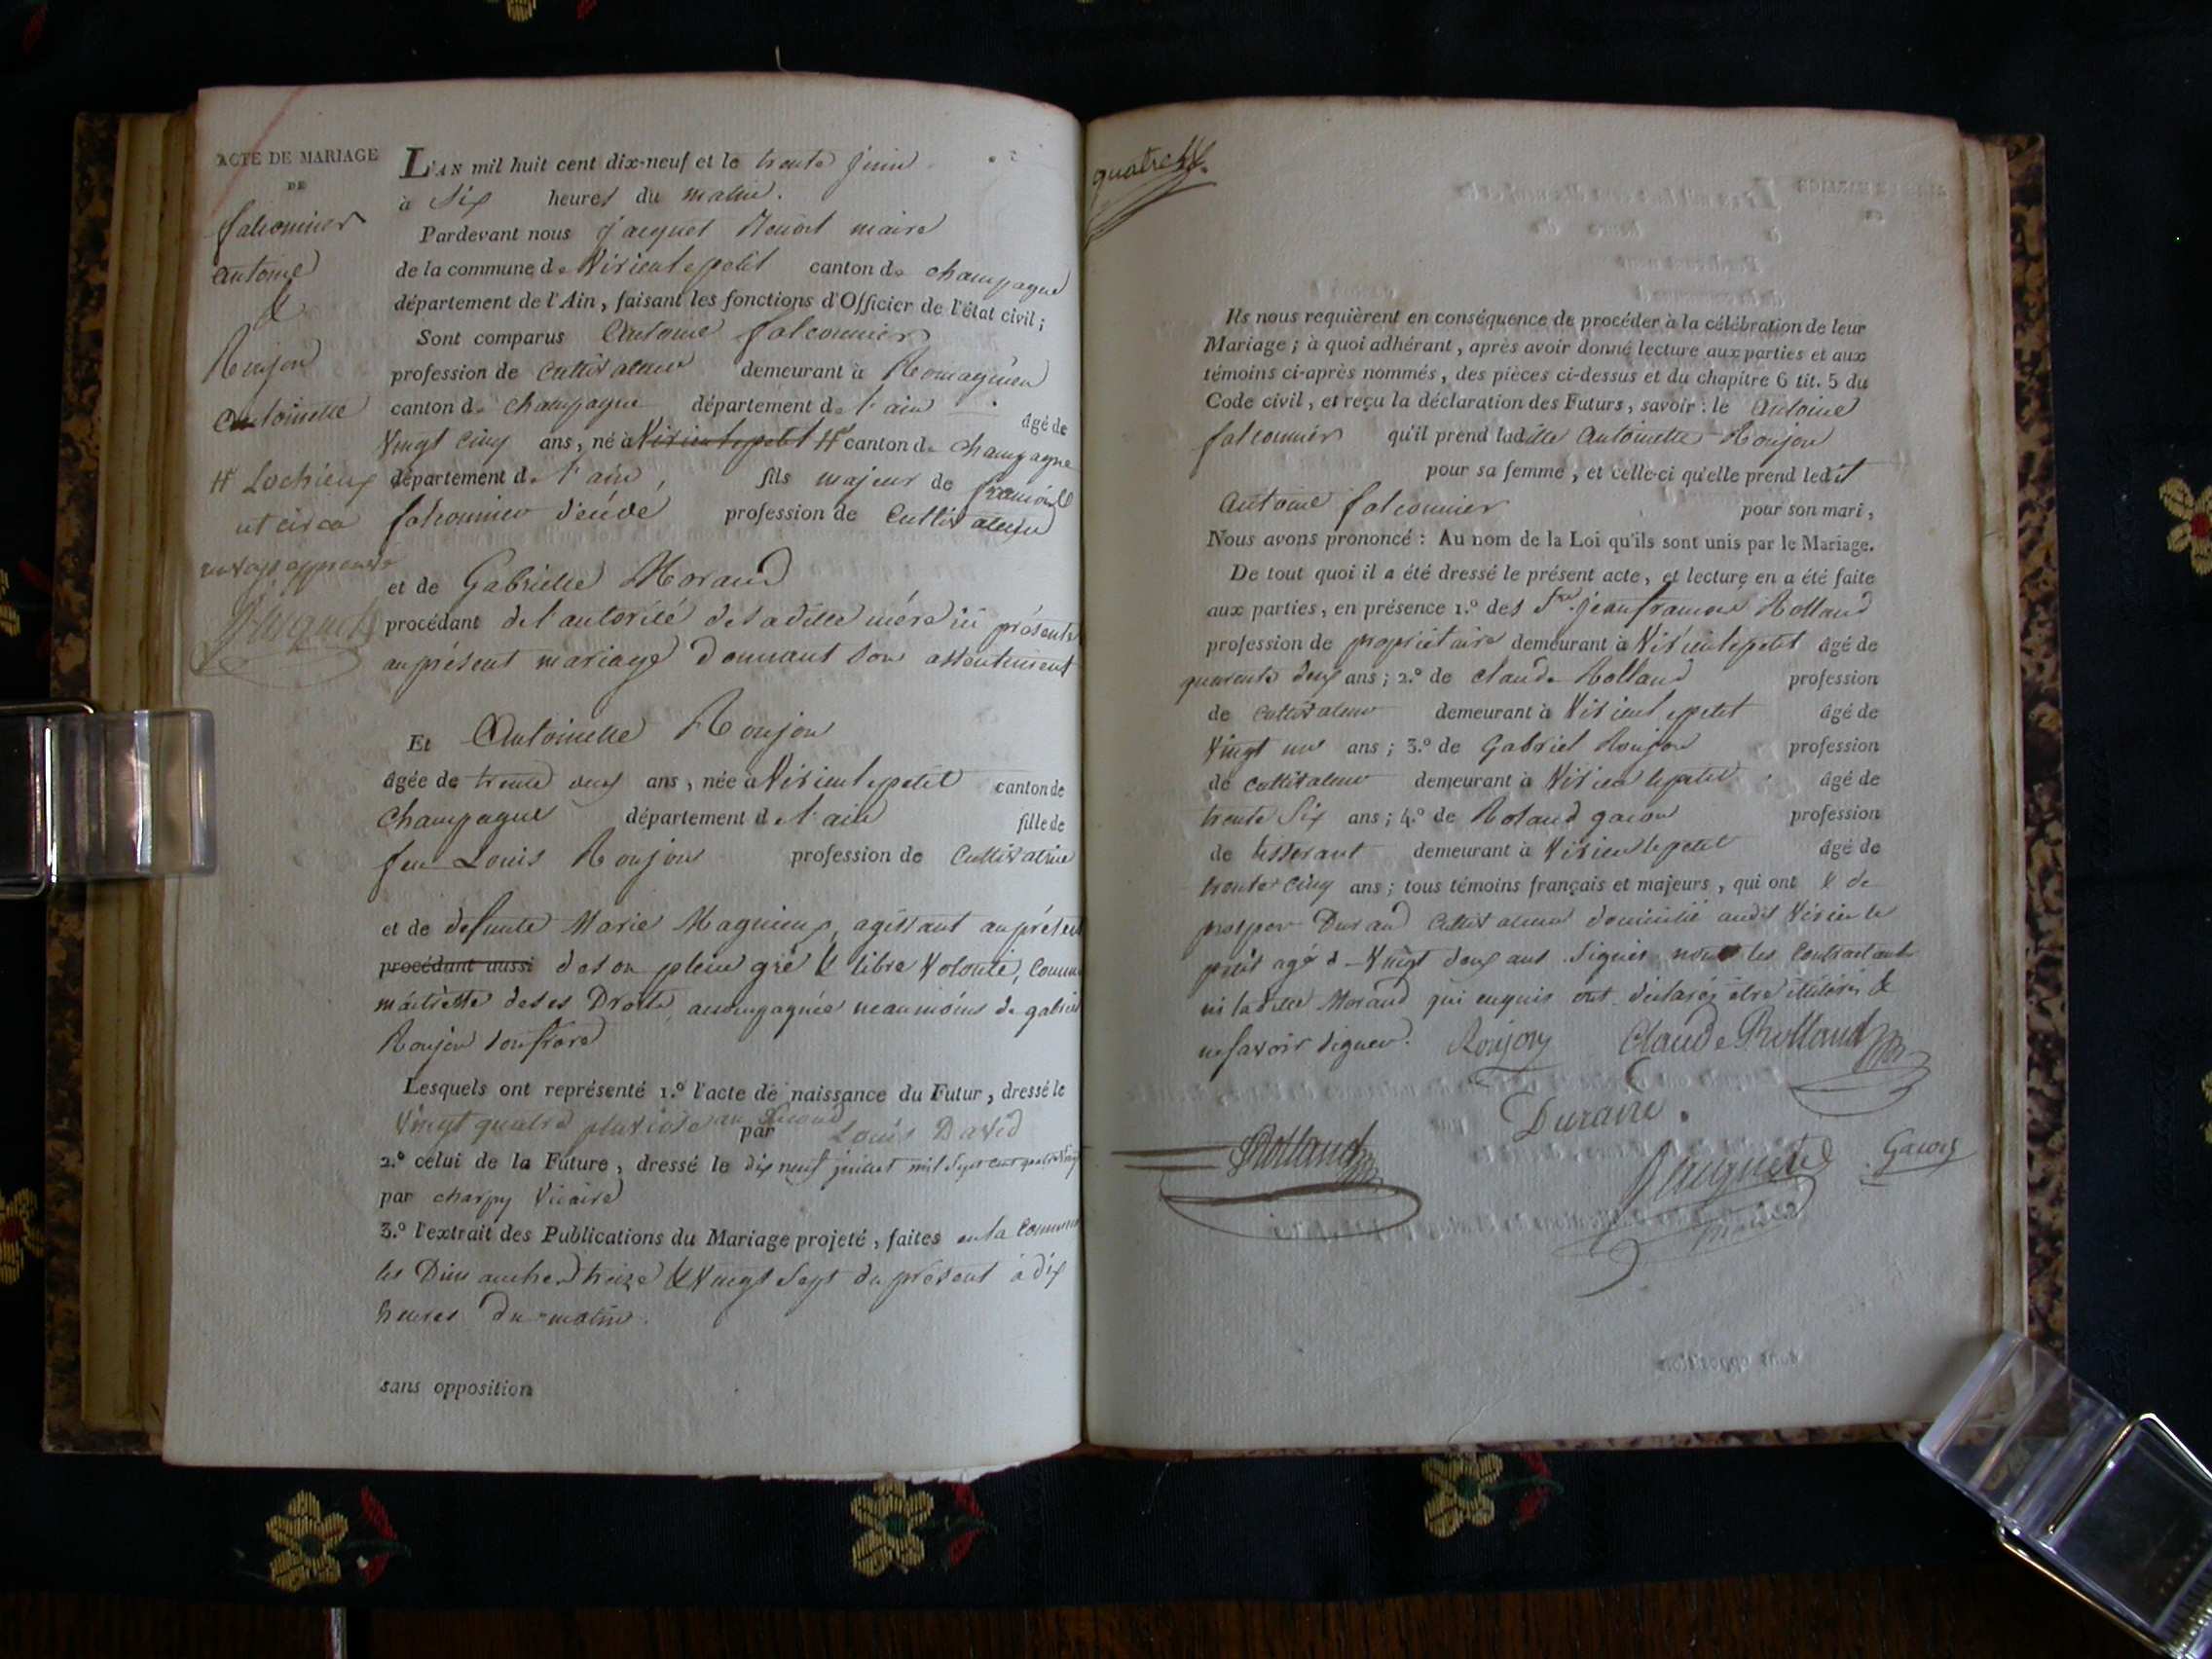 ACTE DE MARIAGE
DE
falconnier
antoine
&
Roujon
antoinette
# Lochieux
ut circa
renvoy approuvé
Jacquet
L'AN mil huit cent dix-neuf et le trente juin
à Six heures du matin.
Pardevant nous Jacquet Benoit maire
de la commune de Virieu le petit canton de champagne
département de l'Ain, faisant les fonctions d'Officier de l'état civil;
Sont comparus Antoine falconnier
profession de Cultivateur demeurant à Romagnieu
canton de Champagne département de l'ain âgé de
Vingt cinq ans, né à Virieu le petit # canton de Champagne
département de l'ain, fils majeur de
falconnier profession de Cultivateur
et de Gabrielle Morand
procédant de l'autorité de sa ditte mére ici présente
au présent mariage donnant son assentiment
Et Antoinette Roujon
âgée de trente ans, née à Virieu le petit canton de
Champagne département de l'ain fille de
feu Louis Roujon profession de Cultivatrice
et de defunte Marie Magnieux, agissant au présent
procédant aussi de son plein gré & libre Volonté, comme
maitresse de ses Droits, accompagnée neanmoins de gabriel
Roujon son frere
Lesquels ont représenté 1.º l'acte de naissance du Futur, dressé le
Vingt quatre pluviose an Second par Louis David
2.º celui de la Future, dressé le dix neuf juillet mil Sept cent quatre Vingt
par charpy Vicaire
3.º l'extrait des Publications du Mariage projeté, faites en la Commune
les Dimanches treize & Vingt Sept du présent à dix
heures du matin.
sans opposition
quatre
Ils nous requièrent en conséquence de procéder à la célébration de leur
Mariage; à quoi adhérant, après avoir donné lecture aux parties et aux
témoins ci-après nommés, des pièces ci-dessus et du chapitre 6 tit. 5 du
Code civil, et reçu la déclaration des Futurs, savoir: le Antoine
falconnier qu'il prend laditte Antoinette Roujon
pour sa femme, et celle-ci qu'elle prend ledit
Antoine falconnier pour son mari,
Nous avons prononcé: Au nom de la Loi qu'ils sont unis par le Mariage.
De tout quoi il a été dressé le présent acte, et lecture en a été faite
aux parties, en présence 1.º des Srs jean francois Rolland
profession de propriétaire demeurant à Virieu le petit âgé de
quarente deux ans; 2.º de claude Rolland profession
de cultivateur demeurant à Virieu le petit âgé de
Vingt un ans; 3.º de Gabriel Roujon profession
de cultivateur demeurant à Virieu le petit âgé de
trente Six ans; 4.º de Roland gacon profession
de tisserant demeurant à Virieu le petit âgé de
trente cinq ans; tous témoins français et majeurs, qui ont & de
prosper Durand Cultivateur domicilié audit Virieu le
petit agé de Vingt deux ans Signés, non les Contractants
ni laditte Morand qui enquis ont déclarés être illitérés &
ne savoir signer. Roujon Claude Rolland
Durand.
Rolland Jacquet Gacon
maire
sans opposition